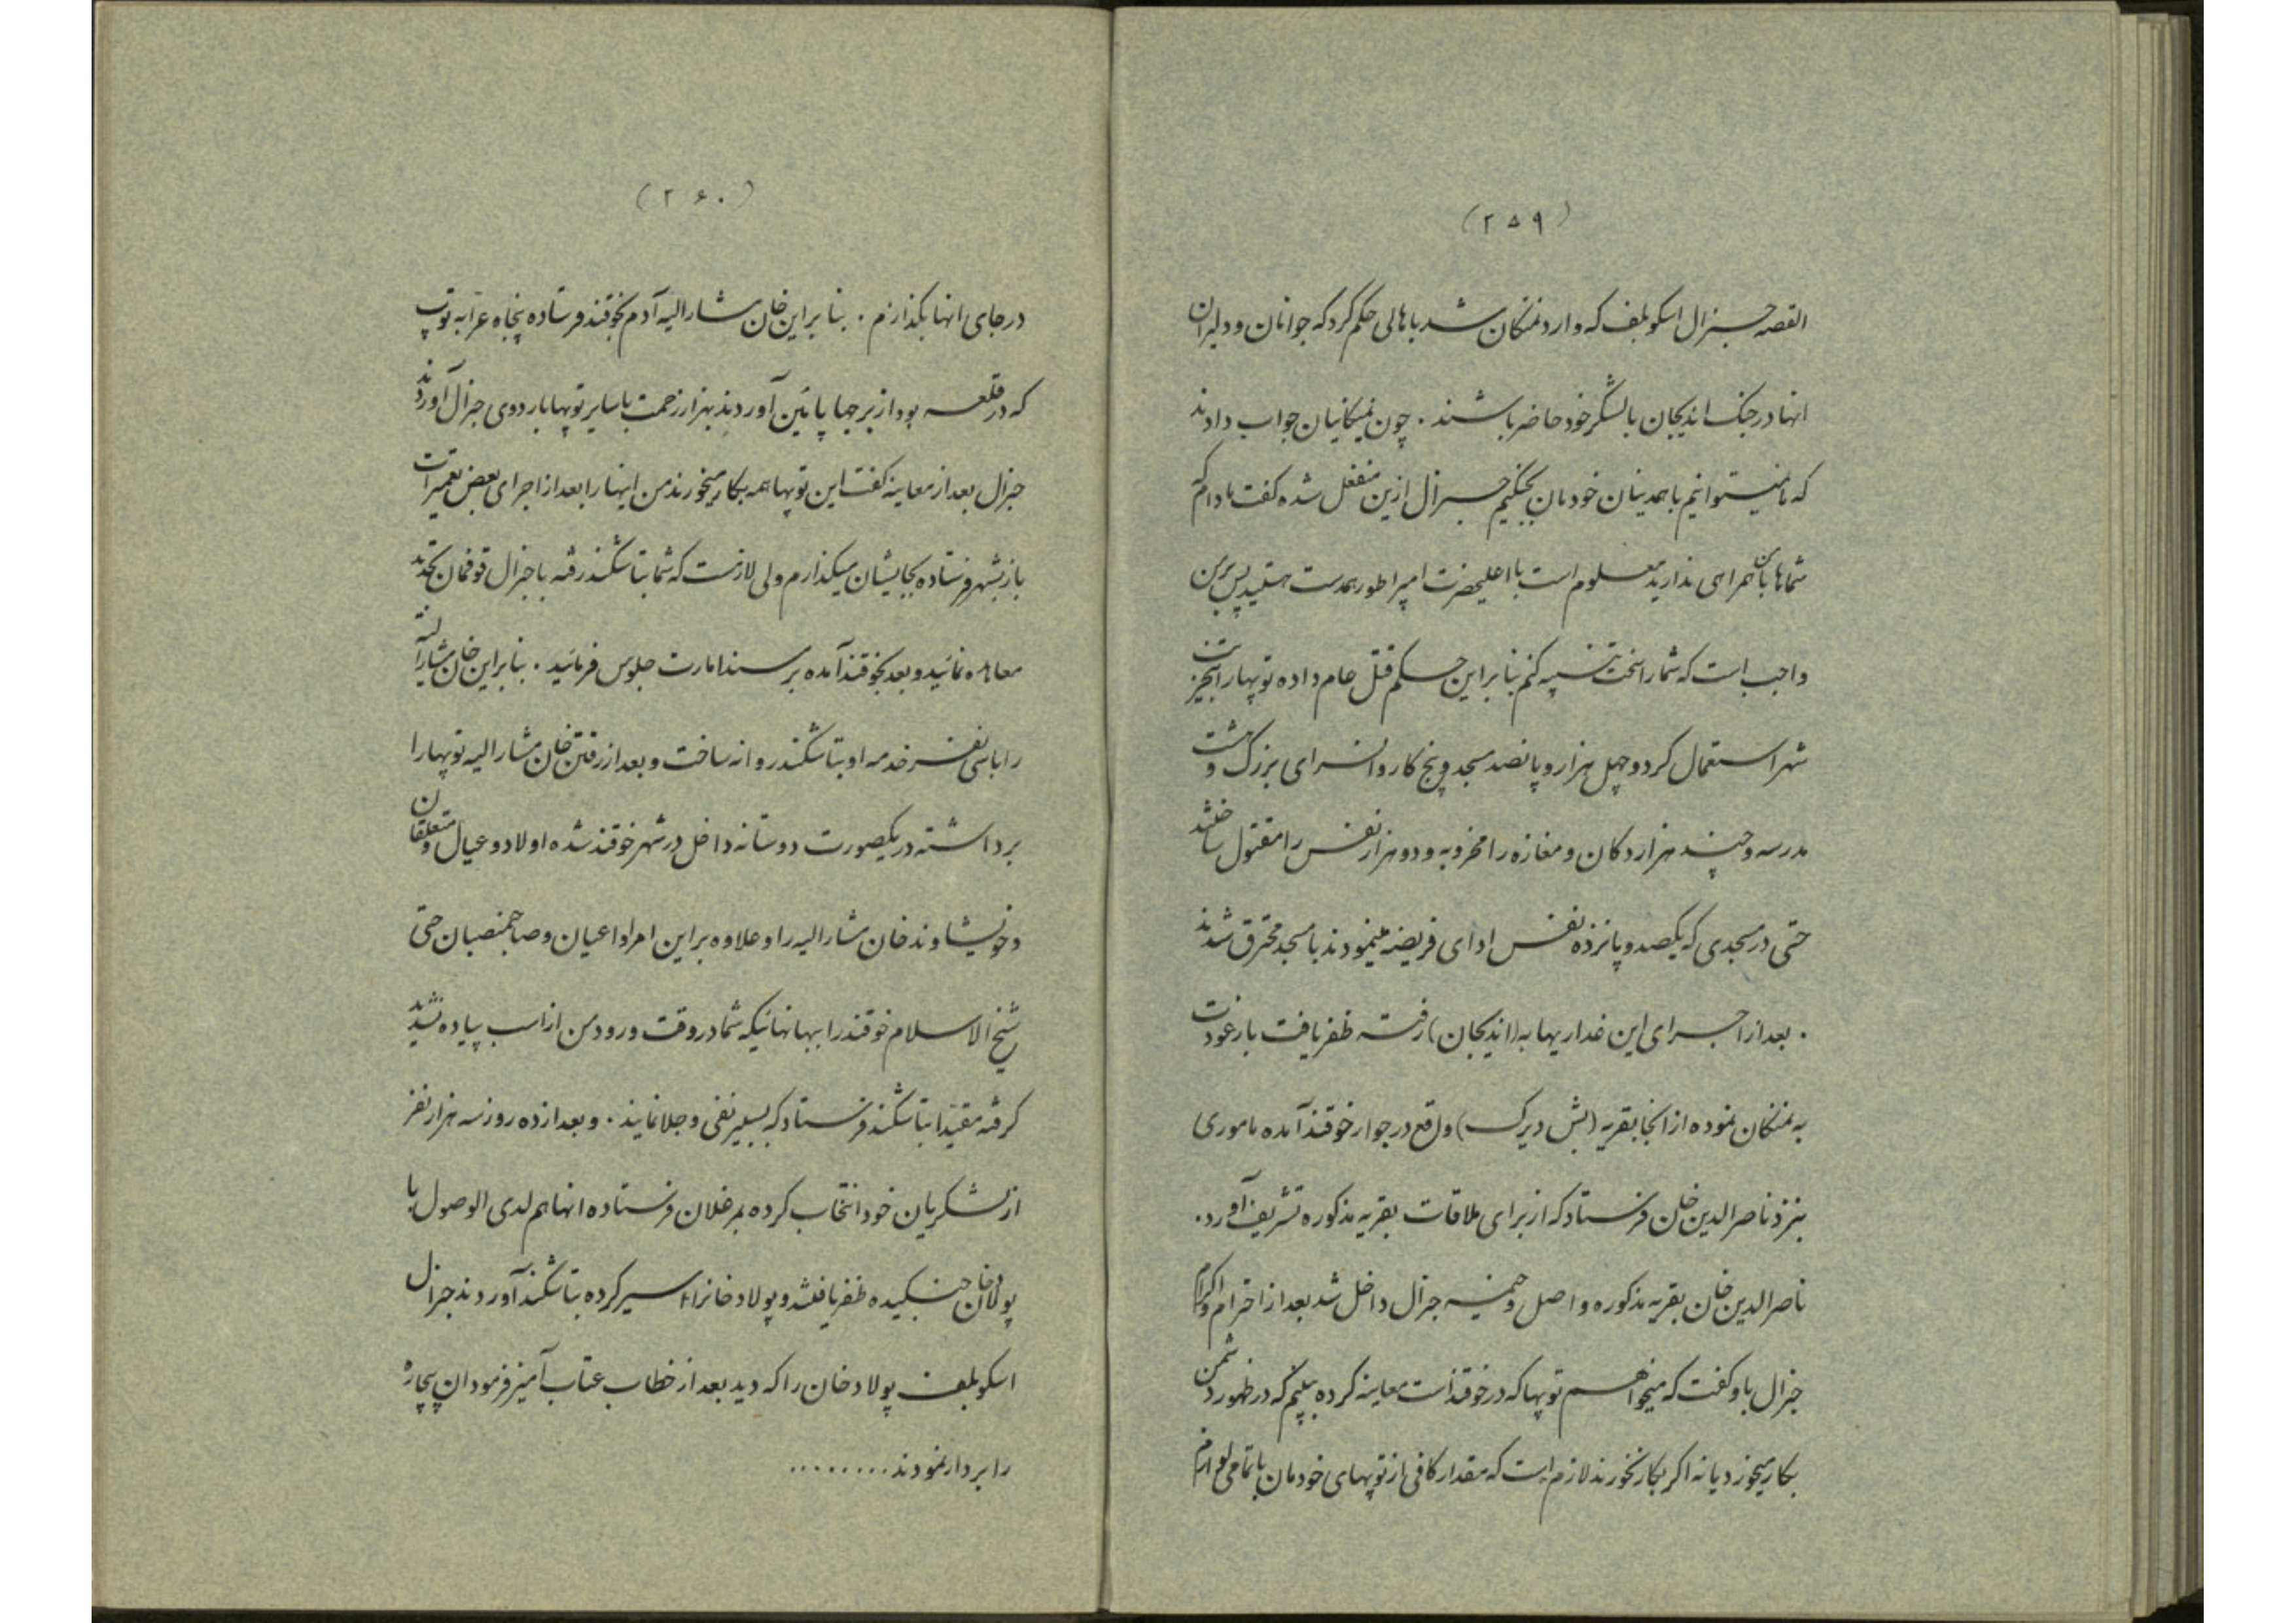 (۲۵۹)
القصه جنرال اسکوبلف که وارد نمنکان شد باهالی حکم کرد که جوانان و دلیران
انها در جنک اندیجان با لشکر خود حاضر باشند . چون نمنکانیان جواب دادند
که ما نمیتوانیم با همدینان خودمان بجنکیم جنرال ازین منفعل شده کفت مادام که
شماها با من همراهی ندارید معلوم است با اعلیحضرت امپراطور همدست هستید پس بر من
واجب است که شما را سخت تنبیه کنم بنابراین حکم قتل عام داده توپها را بتخریب
شهر استعمال کرد و چهل هزار و پانصد مسجد و پنج کاروانسرای بزرک و هشت
مدرسه و چند هزار دکان و مغازه را مخروبه و دو هزار نفس را مقتول ساختند
حتی در مسجدی که یکصد و پانزده نفس ادای فریضه مینمودند با مسجد محترق شدند
. بعد از اجرای این غداریها به (اندیجان) رفته ظفر یافت باز عودت
به نمنکان نموده از انجا بقریه (بش دیرک) واقع در جوار خوقند آمده ماموری
بنزد ناصرالدین خان فرستاد که از برای ملاقات بقریه مذکوره تشریف آورد.
ناصرالدین خان بقریه مذکوره واصل و خیمهٔ جنرال داخل شد بعد از احترام و اکرام
جنرال باو کفت که میخواهم توپها که در خوقند است معاینه کرده ببینم که در ظهور دشمن
بکار میخورد یا نه اکر بکار نخورند لازم است که مقدار کافی از توپهای خودمان با تمامی لوازم
(۲۶۰)
در جای انها بکذارم . بنابراین خان مشارالیه آدم بخوقند فرستاده پنجاه عرابه توپ
که در قلعه بود از برجها پائین آوردند بهزار زحمت با سایر توپها باردوی جنرال آوردند
جنرال بعد از معاینه کفت این توپها همه بکار میخورند من اینها را بعد از اجرای بعض تعمیرات
باز بشهر فرستاده بجایشان میکذارم ولی لازمست که شما بتاشکند رفته با جنرال قوفمان تجدید
معاهده نمائید و بعد بخوقند آمده بر مسند امارت جلوس فرمائید . بنابراین خان مشارالیه
را با سی نفر خدمه او بتاشکند روانه ساخت و بعد از رفتن خان مشارالیه توپها را
برداشته در یکصورت دوستانه داخل در شهر خوقند شده اولاد و عیال و متعلقان
و خویشاوند خان مشارالیه را و علاوه بر این امرا و اعیان و صاحبمنصبان حتی
شیخ الاسلام خوقند را ببهانهائیکه شما در وقت ورود من از اسب پیاده نشدید
کرفته مقیداً بتاشکند فرستاد که بسیبر نفی و جلا نمایند . و بعد از ده روز سه هزار نفر
از لشکریان خود انتخاب کرده بمرغلان فرستاده انها هم لدی الوصول با
پولاد خان جنکیده ظفر یافتند و پولاد خانرا اسیر کرده بتاشکند آوردند جنرال
اسکوبلف پولاد خان را که دید بعد از خطاب عتاب آمیز فرمود ان بیچاره
را بردار نمودند.........